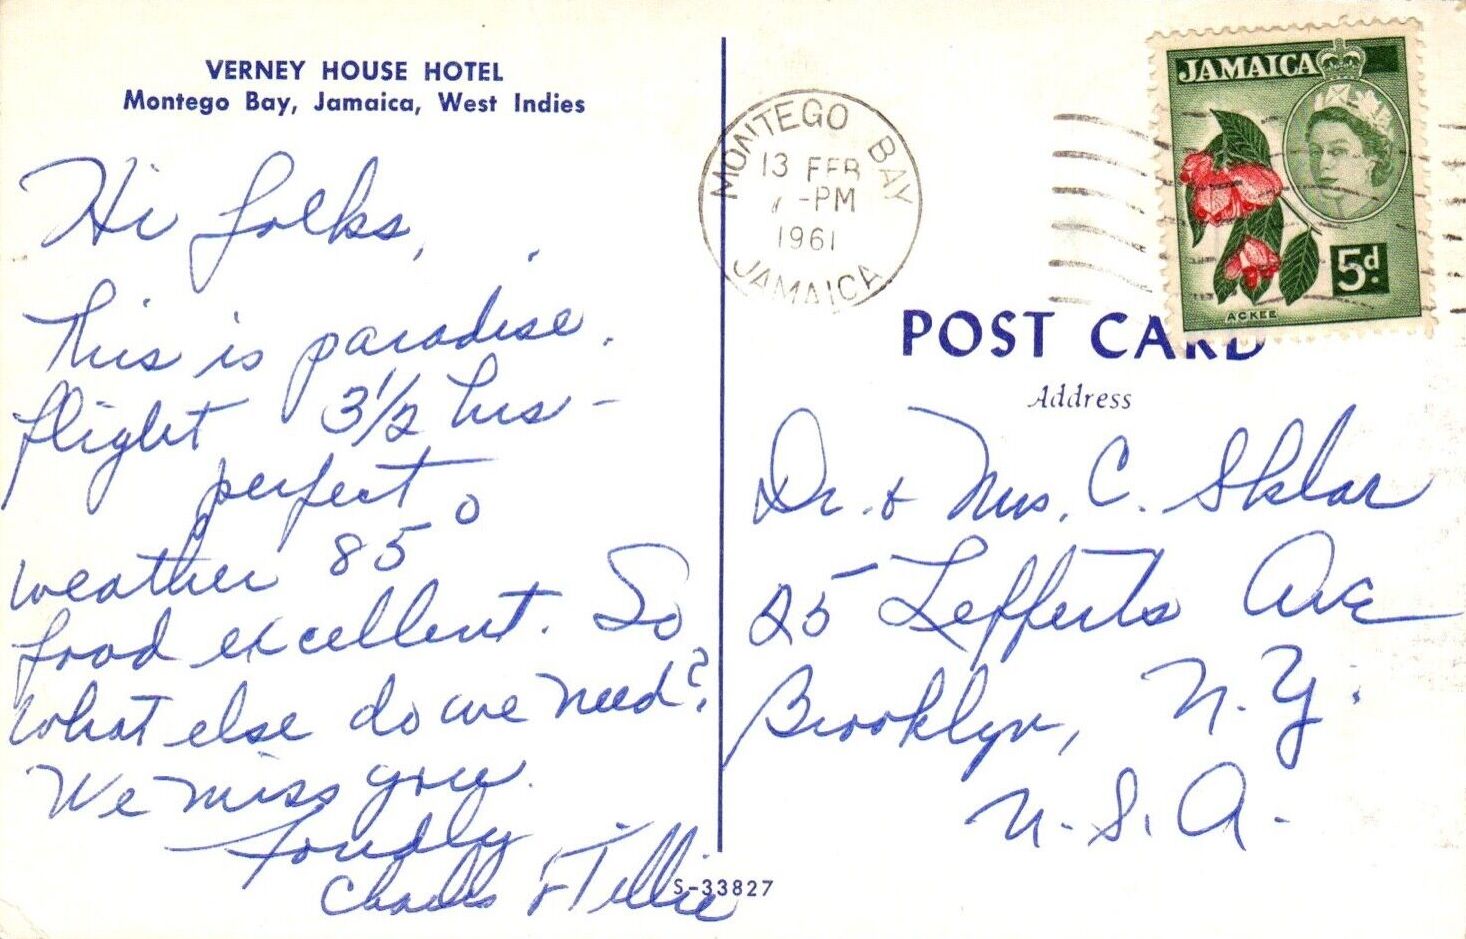 VERNEY HOUSE HOTEL
Montego Bay, Jamaica, West Indies
Hi folks,
This is paradise.
flight 3 1/2 hrs -
perfect
weather 85°
food excellent. So
what else do we need?
We miss you.
Fondly
Charles & Tillie
S-33827
MONTEGO BAY
13 FEB
-PM
1961
JAMAICA
JAMAICA
5d.
ACKEE
POST CARD
Address
Dr. & Mrs. C. Sklar
25 Lefferts Ave
Brooklyn, N.Y.
U.S.A.